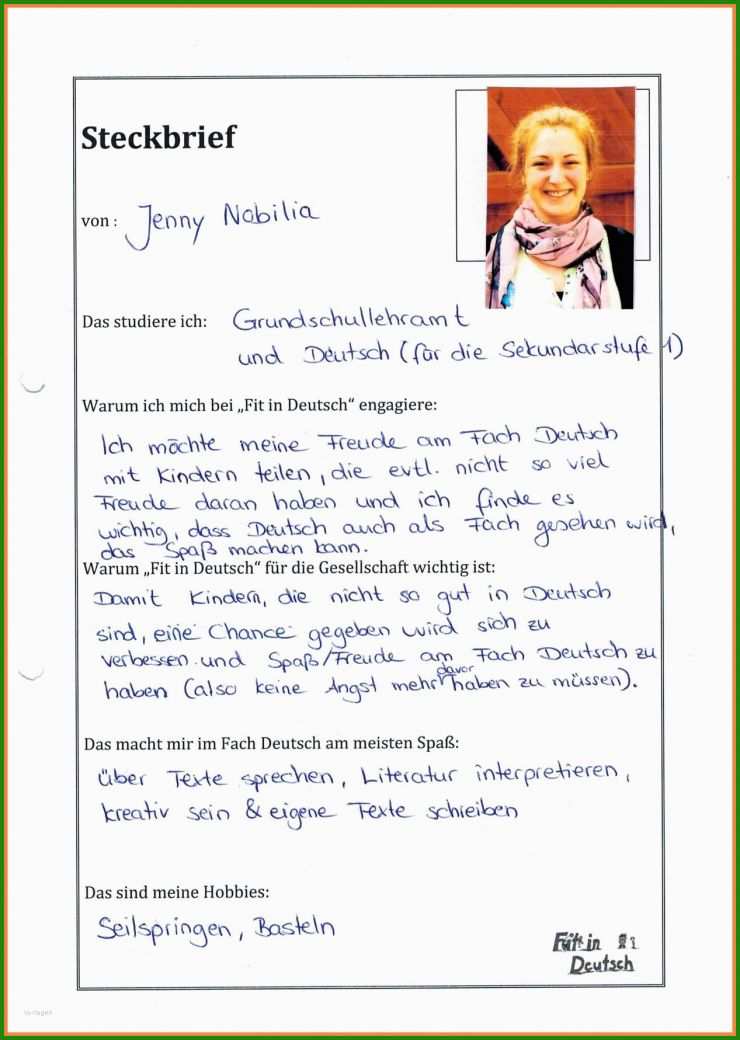 Steckbrief
von : Jenny Nobilia
Das studiere ich: Grundschullehramt
und Deutsch (für die Sekundarstufe 1)
Warum ich mich bei „Fit in Deutsch“ engagiere:
Ich möchte meine Freude am Fach Deutsch
mit Kindern teilen, die evtl. nicht so viel
Freude daran haben und ich finde es
wichtig, dass Deutsch auch als Fach gesehen wird,
das Spaß machen kann.
Warum „Fit in Deutsch“ für die Gesellschaft wichtig ist:
Damit Kindern, die nicht so gut in Deutsch
sind, eine Chance gegeben wird sich zu
verbessen und Spaß/Freude am Fach Deutsch zu
haben (also keine Angst mehr davor haben zu müssen).
Das macht mir im Fach Deutsch am meisten Spaß:
über Texte sprechen, Literatur interpretieren,
kreativ sein & eigene Texte schreiben
Das sind meine Hobbies:
Seilspringen, Basteln
Fit in
Deutsch
vorlagen